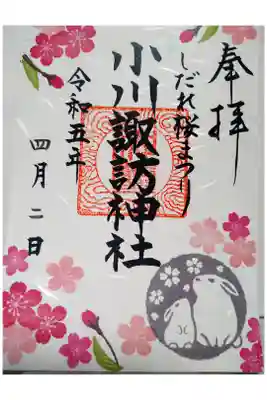 奉拝
しだれ桜まつり
小川諏訪神社
令和五年
四月二日